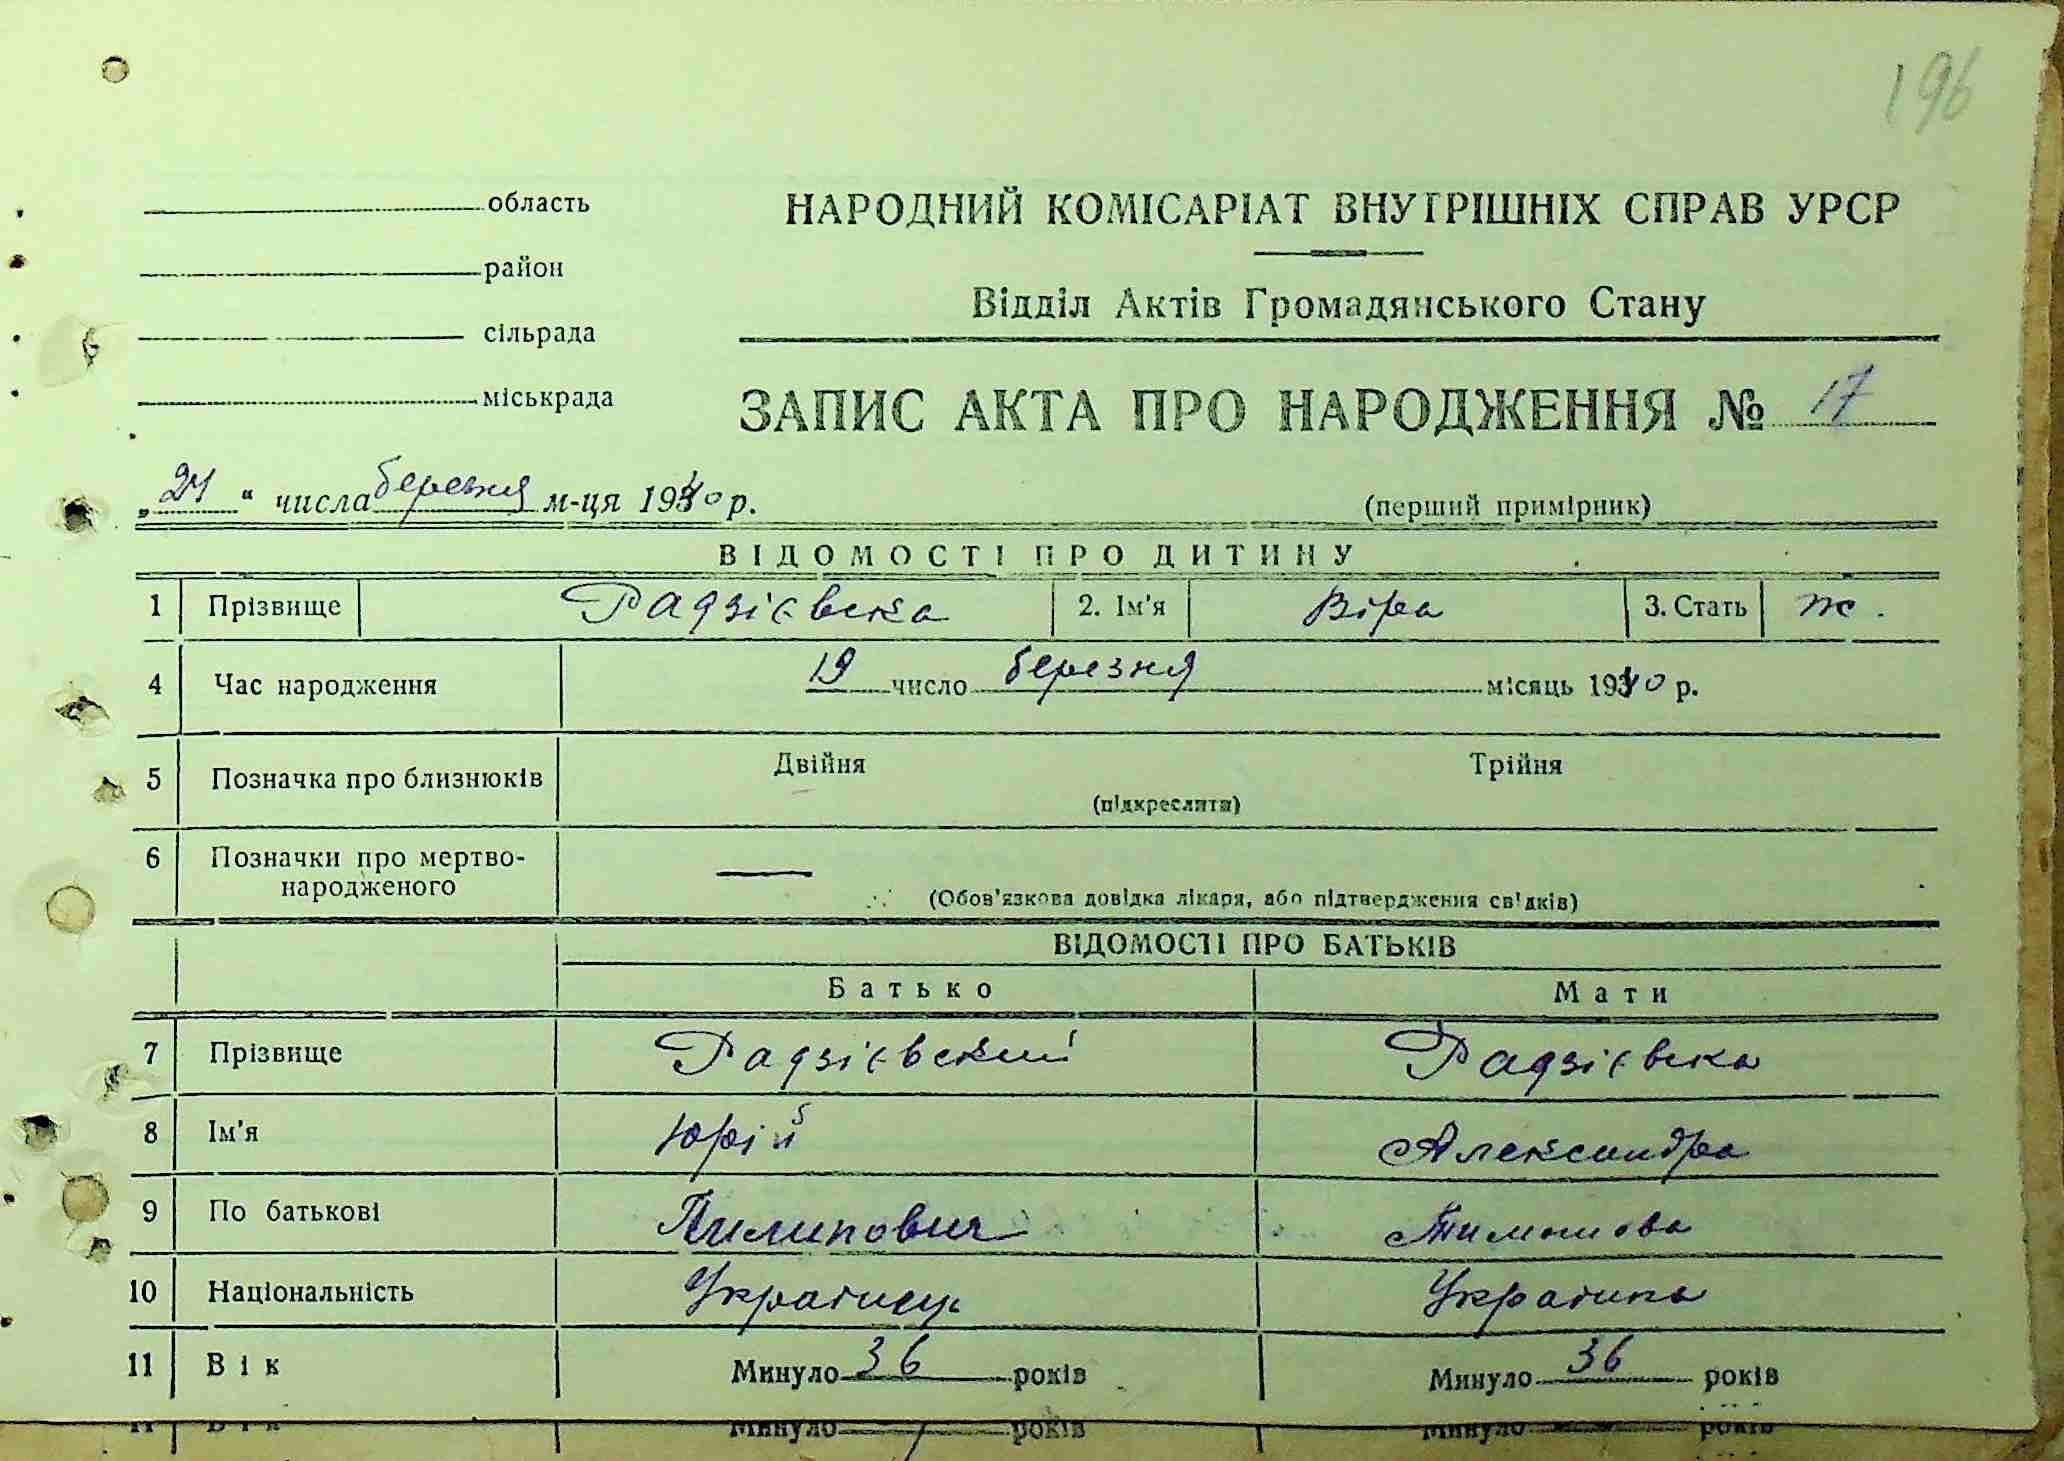 196
область
район
сільрада
міськрада
НАРОДНИЙ КОМІСАРІАТ ВНУТРІШНІХ СПРАВ УРСР
Відділ Актів Громадянського Стану
ЗАПИС АКТА ПРО НАРОДЖЕННЯ № 17
„24“ числа березня м-ця 1940 р.
(перший примірник)
ВІДОМОСТІ ПРО ДИТИНУ
1 Прізвище Радзієвска 2. Ім'я Віра 3. Стать ж.
4 Час народження 19 число березня місяць 1940 р.
5 Позначка про близнюків Двійня Трійня
(підкреслити)
6 Позначки про мертво-
народженого —
(Обов'язкова довідка лікаря, або підтвердження свідків)
ВІДОМОСТІ ПРО БАТЬКІВ
Батько Мати
7 Прізвище Радзієвский Радзієвска
8 Ім'я Юрій Александра
9 По батькові Пилипович Тимошова
10 Національність Українец Українка
11 Вік Минуло 36 років Минуло 36 років
11 Вік Минуло років Минуло років